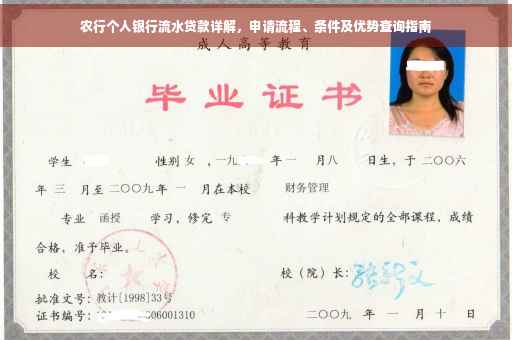 农行个人银行流水贷款详解，申请流程、条件及优势查询指南
成人高等教育
毕业证书
学生 性别 女 ，一九 年 一 月 八 日生，于 二〇〇六
年 三 月至 二〇〇九 年 一 月在本校 财务管理
专业 函授 学习，修完 专 科教学计划规定的全部课程，成绩
合格，准予毕业。
校 名： 校（院）长：
批准文号：教计[1998]33号
证书编号： 06001310 二〇〇九 年 一 月 十 日